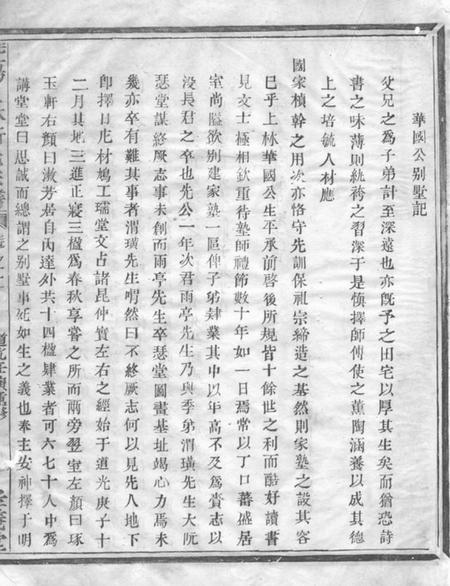 華國公別墅記
父兄之爲子弟計至深遠也亦旣予之田宅以厚其生矣而猶恐詩
書之味薄則紈袴之習深于是愼擇師傅使之薰陶涵養以成其德
上之培毓人材應
國家楨幹之用次亦恪守先訓保祖宗締造之基然則家塾之設其容
已乎上林華國公生平承前啓後所規皆十餘世之利而酷好讀書
見文士極相欽重待塾師禮飾數十年如一日焉常以丁口蕃盛居
室尚隘欲別建家塾一區俾子弟肄業其中以年高不及爲賫志以
沒長君之卒也先公一年次君雨亭先生乃與季弟渭璜先生大阮
瑟堂謀終厥志事未創而雨亭先生卒瑟堂圖畫基址竭心力焉未
幾亦卒有難其事者渭璜先生喟然曰不終厥志何以見先人地下
卽擇日庀材鳩工瑞堂文占諸昆仲實左右之經始于道光庚子十
二月其地三進正寢三楹爲春秋享嘗之所而兩旁翌室左顏曰琢
玉軒右顏曰漱芳居自內達外共十四楹肄業者可六七十人中爲
講堂堂曰思誠而總謂之別墅事死如生之義也奉主安神擇于明